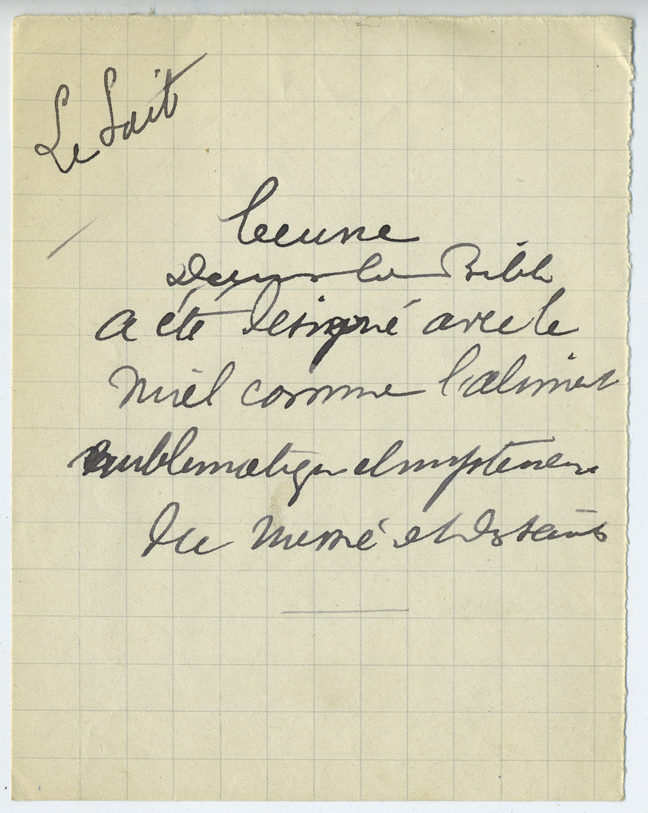 Le Lait
Dans la Bible
a été designé avec le
miel comme l'aliment
emblematique et mysterieux
du Messie et des saints